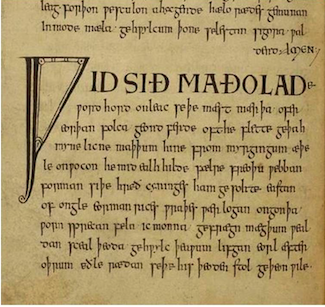 forþon ƿe sculon a hycgende hælo rædes gemunan
in mode mæla gehƿylcum þone selestan sigora ƿal
dend. AMEN:
ǷID SIÐ MAÐOLADE
ƿord hord onleac seþe mæst mærþa ofer
eorþan folca geond ferde oft he flette geþah
myne licne maþþum hine from myrgingum æþe
le onƿocon he mid ealh hilde fælre freoþu ƿebban
forman siþe hreð cyninges ham gesohte eastan
of ongle eorman rices ƿraþes ƿær logan ongon þa
ƿorn sprecan fela ic monna gefrægn mægþum ƿeal
dan sceal þeoda gehƿylc þeaƿum lifgan eorl æfter
oþrum eðle rædan seþe his þeoden stol geþeon ƿile